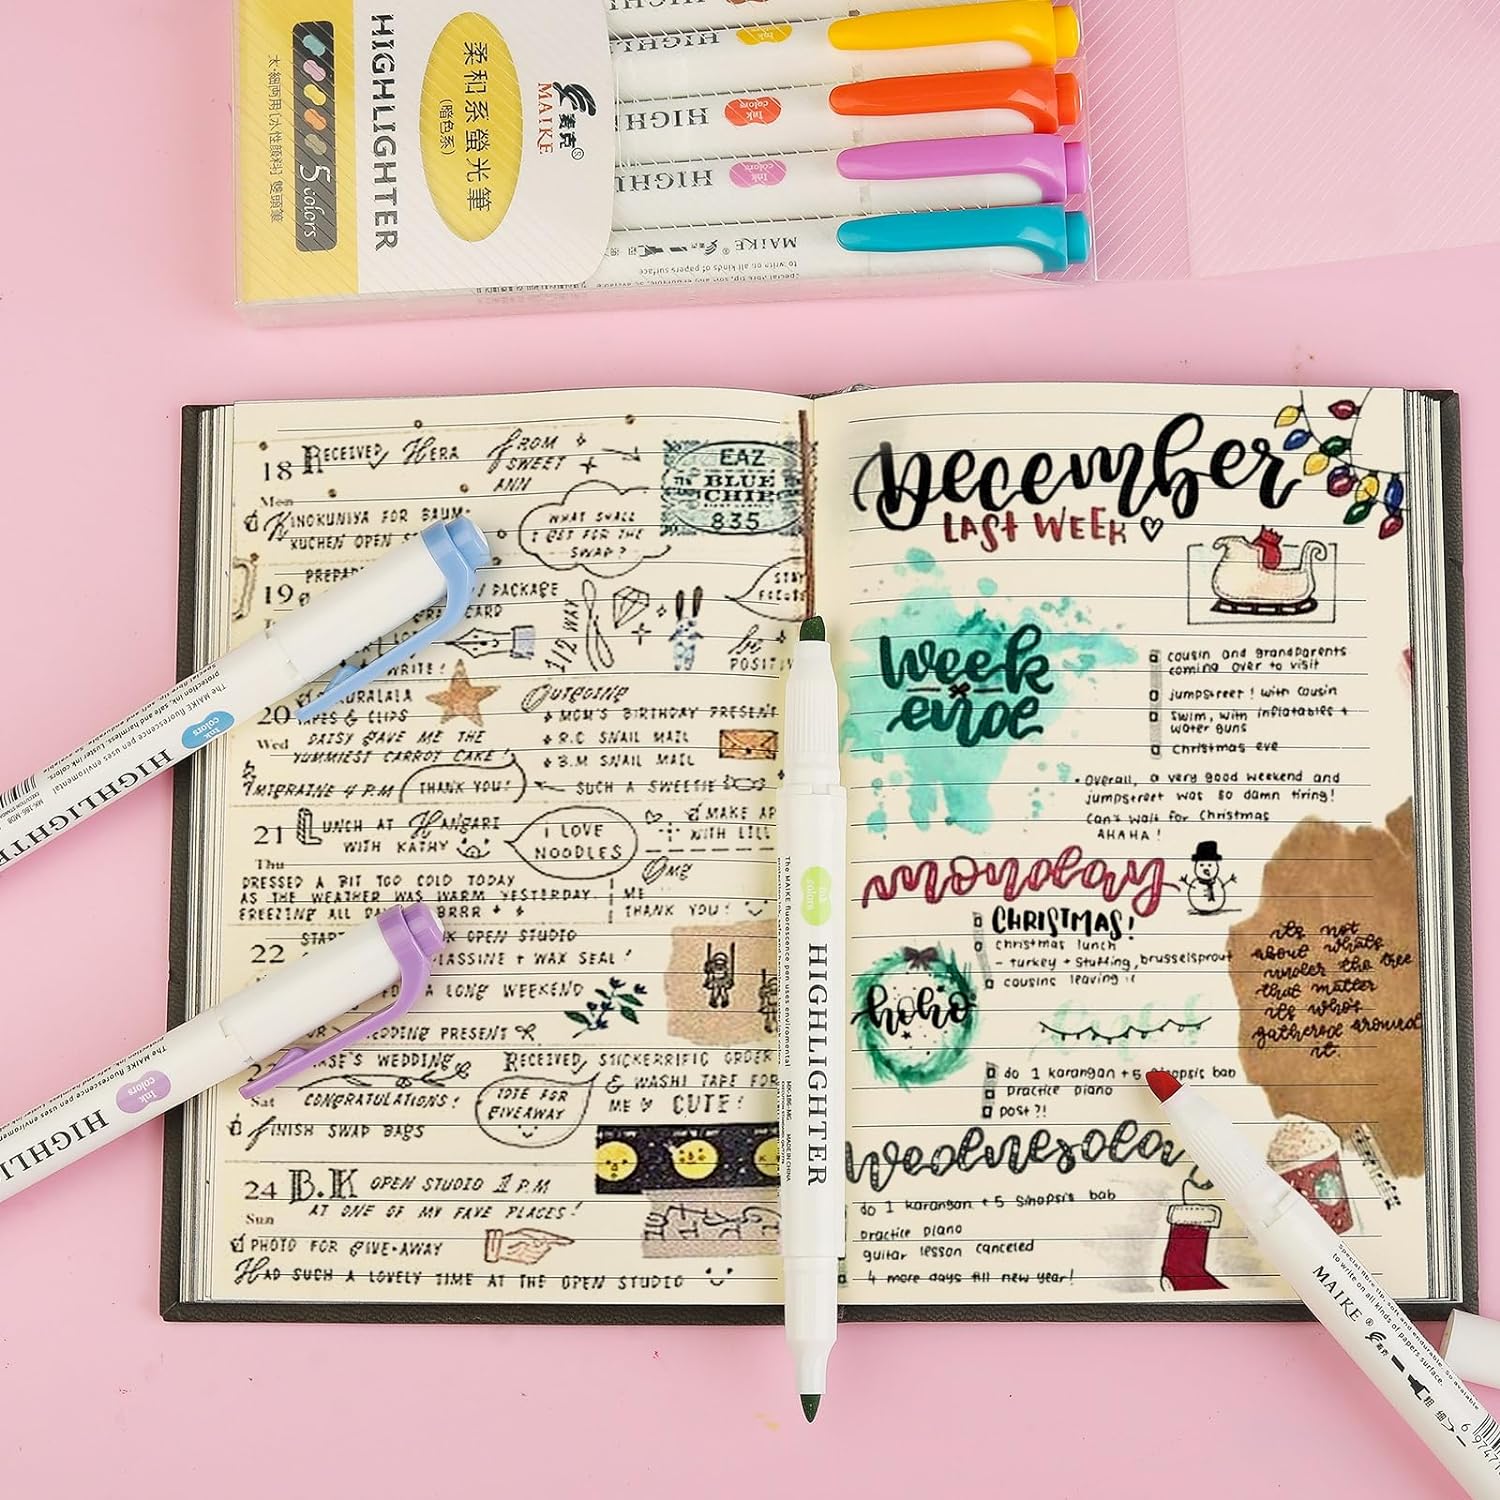 HIGHLIGHTER
柔和系螢光筆
(暗色系)
麦克®
MAIKE
5 colors
太·細両用[水性顔料] 雙頭筆
HIGHL
Ink colors
HIGHL
Ink colors
HIGHL
Ink colors
MAIKE®
to write on all kinds of papers surface
18 RECEIVED HERA FROM SWEET ANN
Mon
KINOKUNIYA FOR BAUM-
KUCHEN OPEN
WHAT SHALL
I GET FOR THE
SWAP?
EAZ
BLUE
CHIP
835
19
PACKAGE
CARD
WRITE!
1/2 WAY
STAY
be
POSITIV
20
Wed
TAPES & CLIPS
DAISY GAVE ME THE
YUMMIEST CARROT CAKE!
MIGRAINE 4 P.M
THANK YOU!
OUTGOING
MOM'S BIRTHDAY PRESENT
R.C SNAIL MAIL
B.M SNAIL MAIL
SUCH A SWEETIE
21 LUNCH AT HANGARI
WITH KATHY
Thu
I LOVE
NOODLES
MAKE AP
WITH LILL
OMG
DRESSED A BIT TOO COLD TODAY
AS THE WEATHER WAS WARM YESTERDAY.
FREEZING ALL DAY BRRR
ME
THANK YOU!
22 START
OPEN STUDIO
GLASSINE + WAX SEAL!
A LONG WEEKEND
WEDDING PRESENT
WEDDING
Sat
CONGRATULATIONS!
TOTE FOR
GIVEAWAY
RECEIVED STICKERRIFIC ORDER
& WASHI TAPE FOR
ME CUTE!
FINISH SWAP BAGS
24 B.K OPEN STUDIO 1 P.M
Sun
AT ONE OF MY FAVE PLACES!
PHOTO FOR GIVE-AWAY
HAD SUCH A LOVELY TIME AT THE OPEN STUDIO
December
LAST WEEK
week
ende
cousin and grandparents
coming over to visit
jumpstreet! with cousin
swim, with inflatables +
water guns
Christmas eve
Overall, a very good weekend and
jumpstreet was so damn tiring!
Can't wait for Christmas
AHAHA!
monday
CHRISTMAS!
christmas lunch
- turkey + stuffing, brusselsprout
cousins leaving :(
hoho
its not
about whats
under the tree
that matter
its who's
gathered around
it.
do 1 karangan + 5 sinopsis bab
practice piano
post ?!
Wednesda
do 1 karangan + 5 sinopsis bab
practice piano
guitar lesson canceled
4 more days till new year!
The MAIKE fluorescence pen uses enviromental
protection ink, safe and harmless. Luster ink colors
Ink colors
HIGHLIGHTER
MK-186-MD8
The MAIKE fluorescence pen uses enviromen
Ink colors
HIGHLI
Ink colors
HIGHLIGHTER
The MAIKE fluorescence pen uses enviromental
MK-186-MG MADE IN CHINA
Special fibre tip, soft and endurable, so available
to write on all kinds of papers surface.
MAIKE® 麦克 粗 细
6 9747